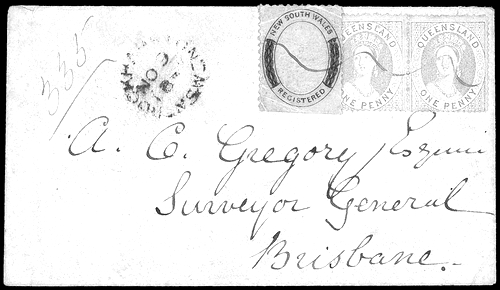 335
NEW SOUTH WALES
REGISTERED
QUEENSLAND
ONE PENNY
QUEENSLAND
ONE PENNY
A. C. Gregory Esquire
Surveyor General
Brisbane.